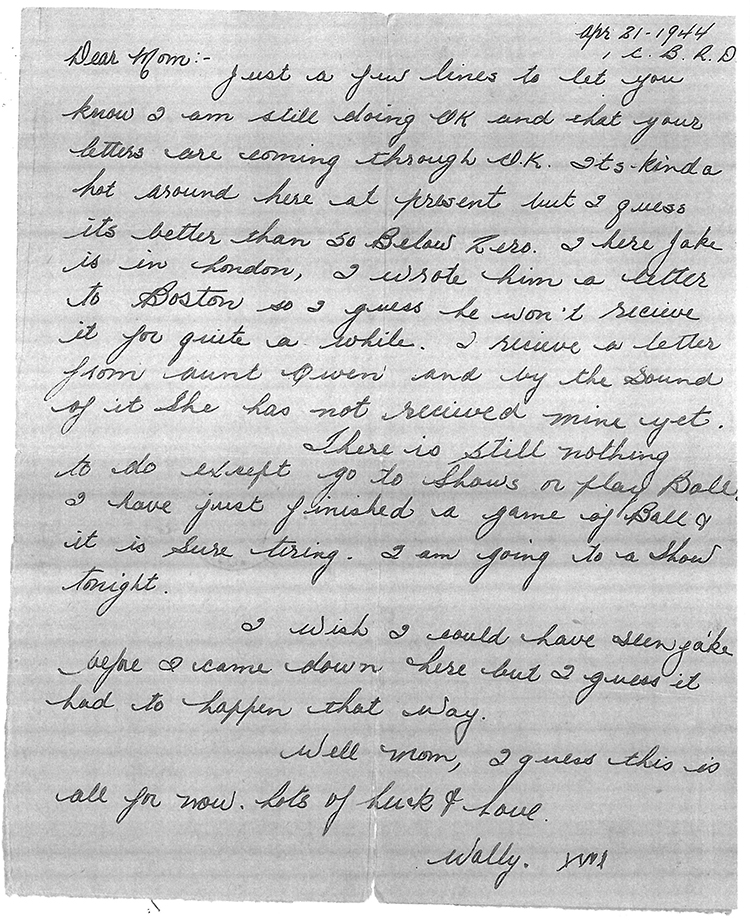 Apr 21-1944
1 C. B. R. D
Dear Mom:-
Just a few lines to let you
know I am still doing OK and that your
letters are coming through O.K. Its kinda
hot around here at present but I guess
its better than 50 Below Zero. I here Jake
is in London, I wrote him a letter
to Boston so I guess he won't recieve
it for quite a while. I recieve a letter
from aunt Gwen and by the sound
of it She has not recieved mine yet.
There is still nothing
to do except go to Shows or play Ball.
I have just finished a game of Ball &
it is Sure tiring. I am going to a Show
tonight.
I wish I could have seen Jake
before I came down here but I guess it
had to happen that way.
Well Mom, I guess this is
all for now. Lots of Luck & Love.
Wally.